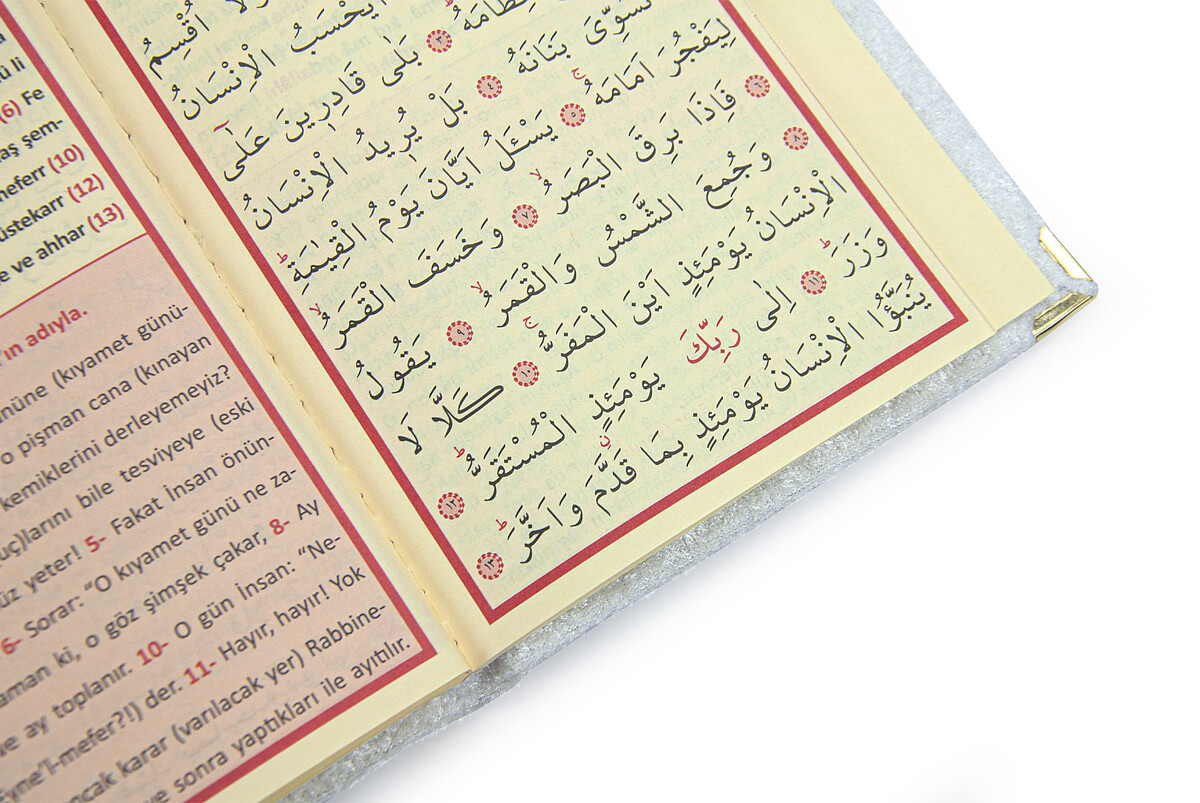 اُقْسِمُ
اَيَحْسَبُ الْاِنْسَانُ
عِظَامَهُ ٣ بَلٰى قَادِرٖينَ عَلٰٓى
نُسَوِّىَ بَنَانَهُ ٤ بَلْ يُرٖيدُ الْاِنْسَانُ
لِيَفْجُرَ اَمَامَهُ ٥ يَسْـَٔلُ اَيَّانَ يَوْمُ الْقِيٰمَةِ
٦ فَاِذَا بَرِقَ الْبَصَرُ ٧ وَخَسَفَ الْقَمَرُ
٨ وَجُمِعَ الشَّمْسُ وَالْقَمَرُ ٩ يَقُولُ
الْاِنْسَانُ يَوْمَئِذٍ اَيْنَ الْمَفَرُّ ١٠ كَلَّا لَا
وَزَرَ ١١ اِلٰى رَبِّكَ يَوْمَئِذٍ الْمُسْتَقَرُّ ١٢
يُنَبَّؤُا الْاِنْسَانُ يَوْمَئِذٍ بِمَا قَدَّمَ وَاَخَّرَ ١٣
li
(6) Fe
şem-
meferr (10)
üstekarr (12)
e ve ahhar (13)
'ın adıyla.
nüne (kıyamet günü-
o pişman cana (kınayan
kemiklerini derleyemeyiz?
uç)larını bile tesviyeye (eski
üz yeter! 5- Fakat İnsan önün-
6- Sorar: “O kıyamet günü ne za-
aman ki, o göz şimşek çakar, 8- Ay
ve ay toplanır. 10- O gün İnsan: “Ne-
Eyne’l-mefer?!) der. 11- Hayır, hayır! Yok
ncak karar (varılacak yer) Rabbine-
ve sonra yaptıkları ile ayıtılır.